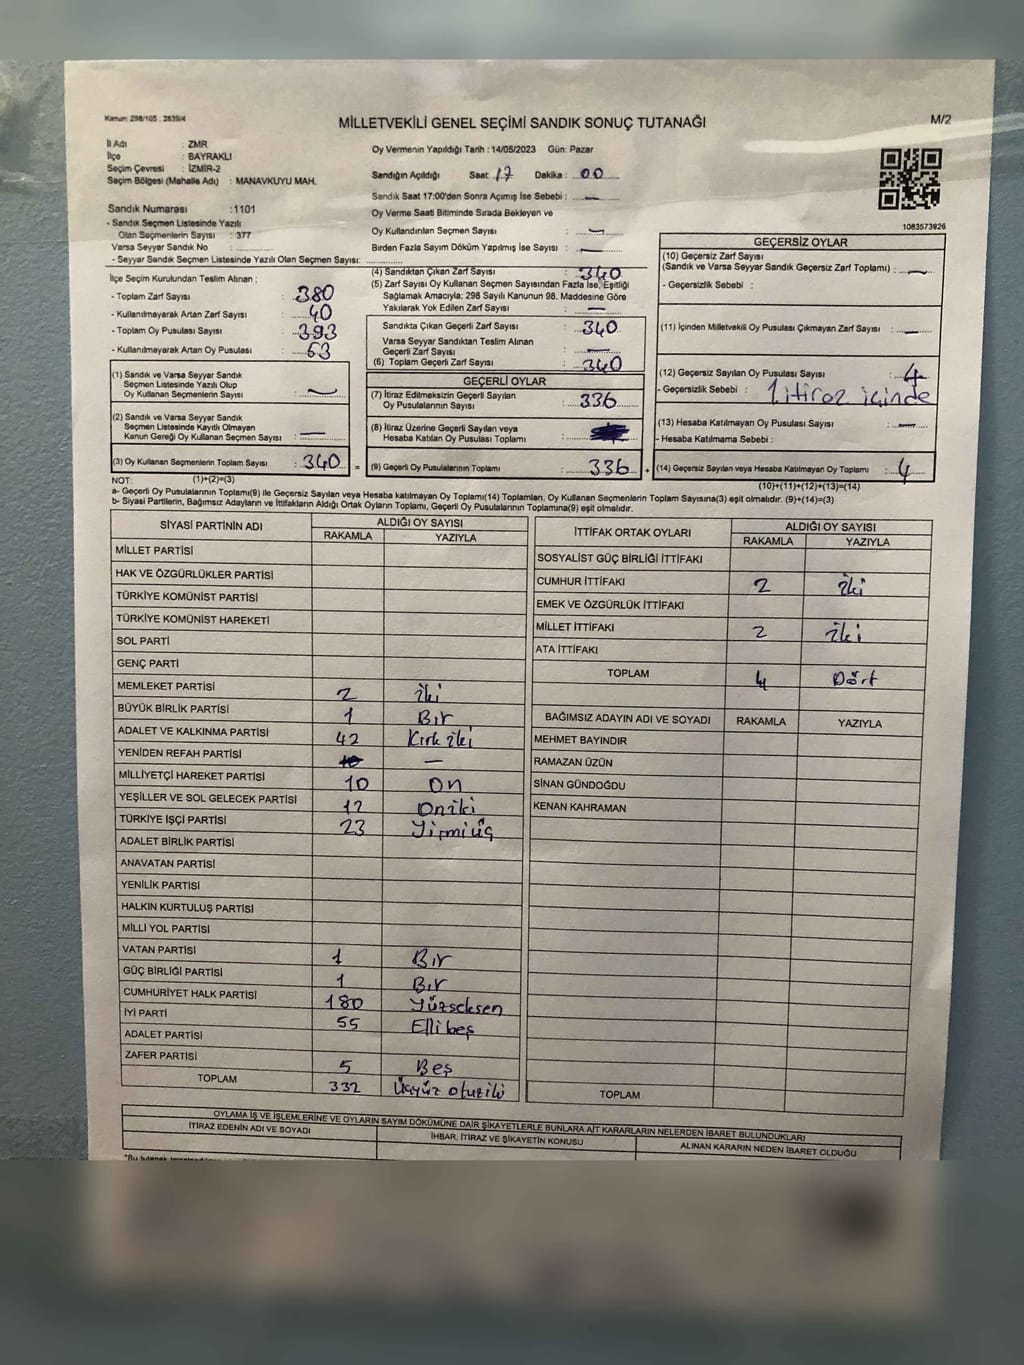 Kanun: 298/105 , 2839/4
MİLLETVEKİLİ GENEL SEÇİMİ SANDIK SONUÇ TUTANAĞI
M/2
İl Adı : ZMR
İlçe : BAYRAKLI
Seçim Çevresi : İZMİR-2
Seçim Bölgesi (Mahalle Adı) : MANAVKUYU MAH.
Sandık Numarası :1101
- Sandık Seçmen Listesinde Yazılı
Olan Seçmenlerin Sayısı : 377
Varsa Seyyar Sandık No :
- Seyyar Sandık Seçmen Listesinde Yazılı Olan Seçmen Sayısı:
Oy Vermenin Yapıldığı Tarih : 14/05/2023 Gün: Pazar
Sandığın Açıldığı Saat: 17 Dakika : 00
Sandık Saat 17:00'den Sonra Açımış İse Sebebi : —
Oy Verme Saati Bitiminde Sırada Bekleyen ve
Oy Kullandırılan Seçmen Sayısı : —
Birden Fazla Sayım Döküm Yapılmış İse Sayısı : —
1083573926
İlçe Seçim Kurulundan Teslim Alınan :
- Toplam Zarf Sayısı : 380
- Kullanılmayarak Artan Zarf Sayısı : 40
- Toplam Oy Pusulası Sayısı : 393
- Kullanılmayarak Artan Oy Pusulası : 53
(1) Sandık ve Varsa Seyyar Sandık
Seçmen Listesinde Yazılı Olup
Oy Kullanan Seçmenlerin Sayısı : —
(2) Sandık ve Varsa Seyyar Sandık
Seçmen Listesinde Kayıtlı Olmayan
Kanun Gereği Oy Kullanan Seçmen Sayısı : —
(3) Oy Kullanan Seçmenlerin Toplam Sayısı : 340
(4) Sandıktan Çıkan Zarf Sayısı : 340
(5) Zarf Sayısı Oy Kullanan Seçmen Sayısından Fazla İse, Eşitliği
Sağlamak Amacıyla; 298 Sayılı Kanunun 98. Maddesine Göre
Yakılarak Yok Edilen Zarf Sayısı : —
Sandıkta Çıkan Geçerli Zarf Sayısı : 340
Varsa Seyyar Sandıktan Teslim Alınan
Geçerli Zarf Sayısı : —
(6) Toplam Geçerli Zarf Sayısı : 340
GEÇERLİ OYLAR
(7) İtiraz Edilmeksizin Geçerli Sayılan
Oy Pusulalarının Sayısı : 336
(8) İtiraz Üzerine Geçerli Sayılan veya
Hesaba Katılan Oy Pusulası Toplamı :
= (9) Geçerli Oy Pusulalarının Toplamı : 336 +
GEÇERSİZ OYLAR
(10) Geçersiz Zarf Sayısı
(Sandık ve Varsa Seyyar Sandık Geçersiz Zarf Toplamı) : —
- Geçersizlik Sebebi :
(11) İçinden Milletvekili Oy Pusulası Çıkmayan Zarf Sayısı : —
(12) Geçersiz Sayılan Oy Pusulası Sayısı : 4
- Geçersizlik Sebebi : 1 itiraz içinde
(13) Hesaba Katılmayan Oy Pusulası Sayısı : —
- Hesaba Katılmama Sebebi :
(14) Geçersiz Sayılan veya Hesaba Katılmayan Oy Toplamı : 4
NOT: (1)+(2)=(3)
(10)+(11)+(12)+(13)=(14)
a- Geçerli Oy Pusulalarının Toplamı(9) ile Geçersiz Sayılan veya Hesaba katılmayan Oy Toplamı(14) Toplamları, Oy Kullanan Seçmenlerin Toplam Sayısına(3) eşit olmalıdır. (9)+(14)=(3)
b- Siyasi Partilerin, Bağımsız Adayların ve İttifakların Aldığı Ortak Oyların Toplamı, Geçerli Oy Pusulalarının Toplamına(9) eşit olmalıdır.
SİYASİ PARTİNİN ADI
ALDIĞI OY SAYISI
RAKAMLA YAZIYLA
MİLLET PARTİSİ
HAK VE ÖZGÜRLÜKLER PARTİSİ
TÜRKİYE KOMÜNİST PARTİSİ
TÜRKİYE KOMÜNİST HAREKETİ
SOL PARTİ
GENÇ PARTİ
MEMLEKET PARTİSİ 2 iki
BÜYÜK BİRLİK PARTİSİ 1 Bir
ADALET VE KALKINMA PARTİSİ 42 Kırk iki
YENİDEN REFAH PARTİSİ —
MİLLİYETÇİ HAREKET PARTİSİ 10 On
YEŞİLLER VE SOL GELECEK PARTİSİ 12 Oniki
TÜRKİYE İŞÇİ PARTİSİ 23 Yirmiüç
ADALET BİRLİK PARTİSİ
ANAVATAN PARTİSİ
YENİLİK PARTİSİ
HALKIN KURTULUŞ PARTİSİ
MİLLİ YOL PARTİSİ
VATAN PARTİSİ 1 Bir
GÜÇ BİRLİĞİ PARTİSİ 1 Bir
CUMHURİYET HALK PARTİSİ 180 Yüzseksen
İYİ PARTİ 55 Ellibeş
ADALET PARTİSİ
ZAFER PARTİSİ 5 Beş
TOPLAM 332 Üçyüz otuziki
İTTİFAK ORTAK OYLARI
ALDIĞI OY SAYISI
RAKAMLA YAZIYLA
SOSYALİST GÜÇ BİRLİĞİ İTTİFAKI
CUMHUR İTTİFAKI 2 iki
EMEK VE ÖZGÜRLÜK İTTİFAKI
MİLLET İTTİFAKI 2 iki
ATA İTTİFAKI
TOPLAM 4 Dört
BAĞIMSIZ ADAYIN ADI VE SOYADI RAKAMLA YAZIYLA
MEHMET BAYINDIR
RAMAZAN ÜZÜN
SİNAN GÜNDOĞDU
KENAN KAHRAMAN
TOPLAM
OYLAMA İŞ VE İŞLEMLERİNE VE OYLARIN SAYIM DÖKÜMÜNE DAİR ŞİKAYETLERLE BUNLARA AİT KARARLARIN NELERDEN İBARET BULUNDUKLARI
İTİRAZ EDENİN ADI VE SOYADI
İHBAR, İTİRAZ VE ŞİKAYETİN KONUSU
ALINAN KARARIN NEDEN İBARET OLDUĞU